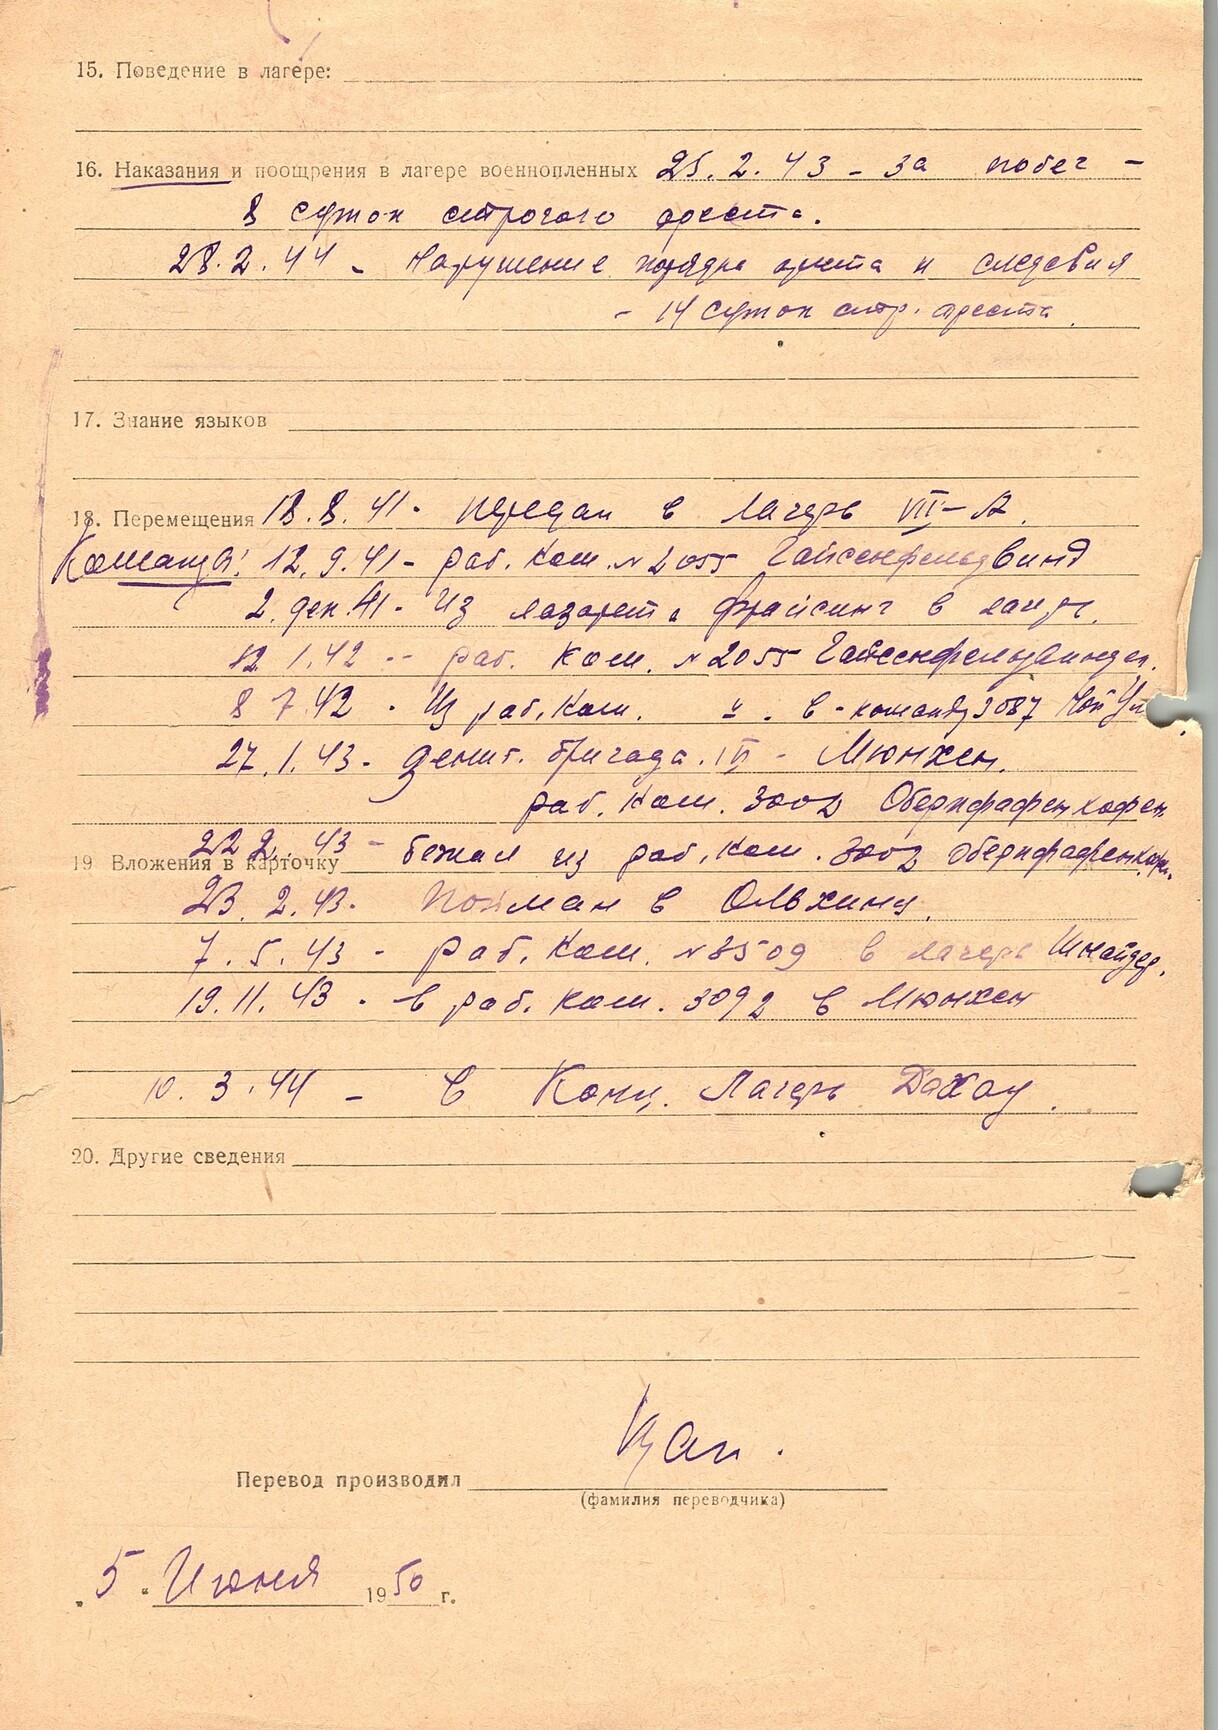 15. Поведение в лагере:
16. Наказания и поощрения в лагере военнопленных 25.2.43 - за побег -
8 суток строгого ареста.
28.2.44 - Нарушение порядка ареста и следствия
- 14 суток стр. ареста.
17. Знание языков
18. Перемещения 18.8.41 - передан в лагерь VII-A.
Команды: 12.9.41 - раб. ком. № 2055 Гайсенфельдвинд
2. дек. 41 - Из лазарета Фрайсинг в лагерь.
12 1.42 - раб. ком. № 2055
8 7.42 - Из раб. ком. " . в - команду 3087 Ной
27.1.43 - зенит. бригада. IV - Мюнхен.
раб. ком. 3002 Оберпфафенхофен.
22 2. 43 - бежал из раб. ком. 3002 Оберпфафенхофен.
19 Вложения в карточку
23.2.43. Пойман в
7.5.43 - раб. ком. № 3509 в лагерь Шнайдер.
19.11.43 - в раб. ком. 3092 в Мюнхен
10.3.44 - в Конц. Лагерь Дахау.
20. Другие сведения
Перевод производил
(фамилия переводчика)
„5" Июня 1950 г.